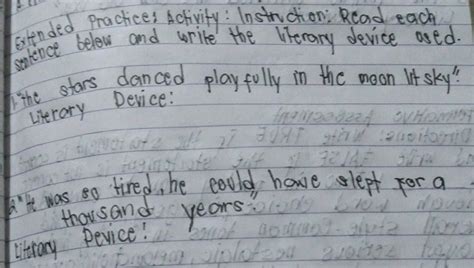 Extended Practice; Activity: Instruction: Read each
sentence below and write the literary device used.
1. "the stars danced playfully in the moon lit sky".
Literary Device:
2. "He was so tired, he could, have slept for a
thousand years"
Literary Device: